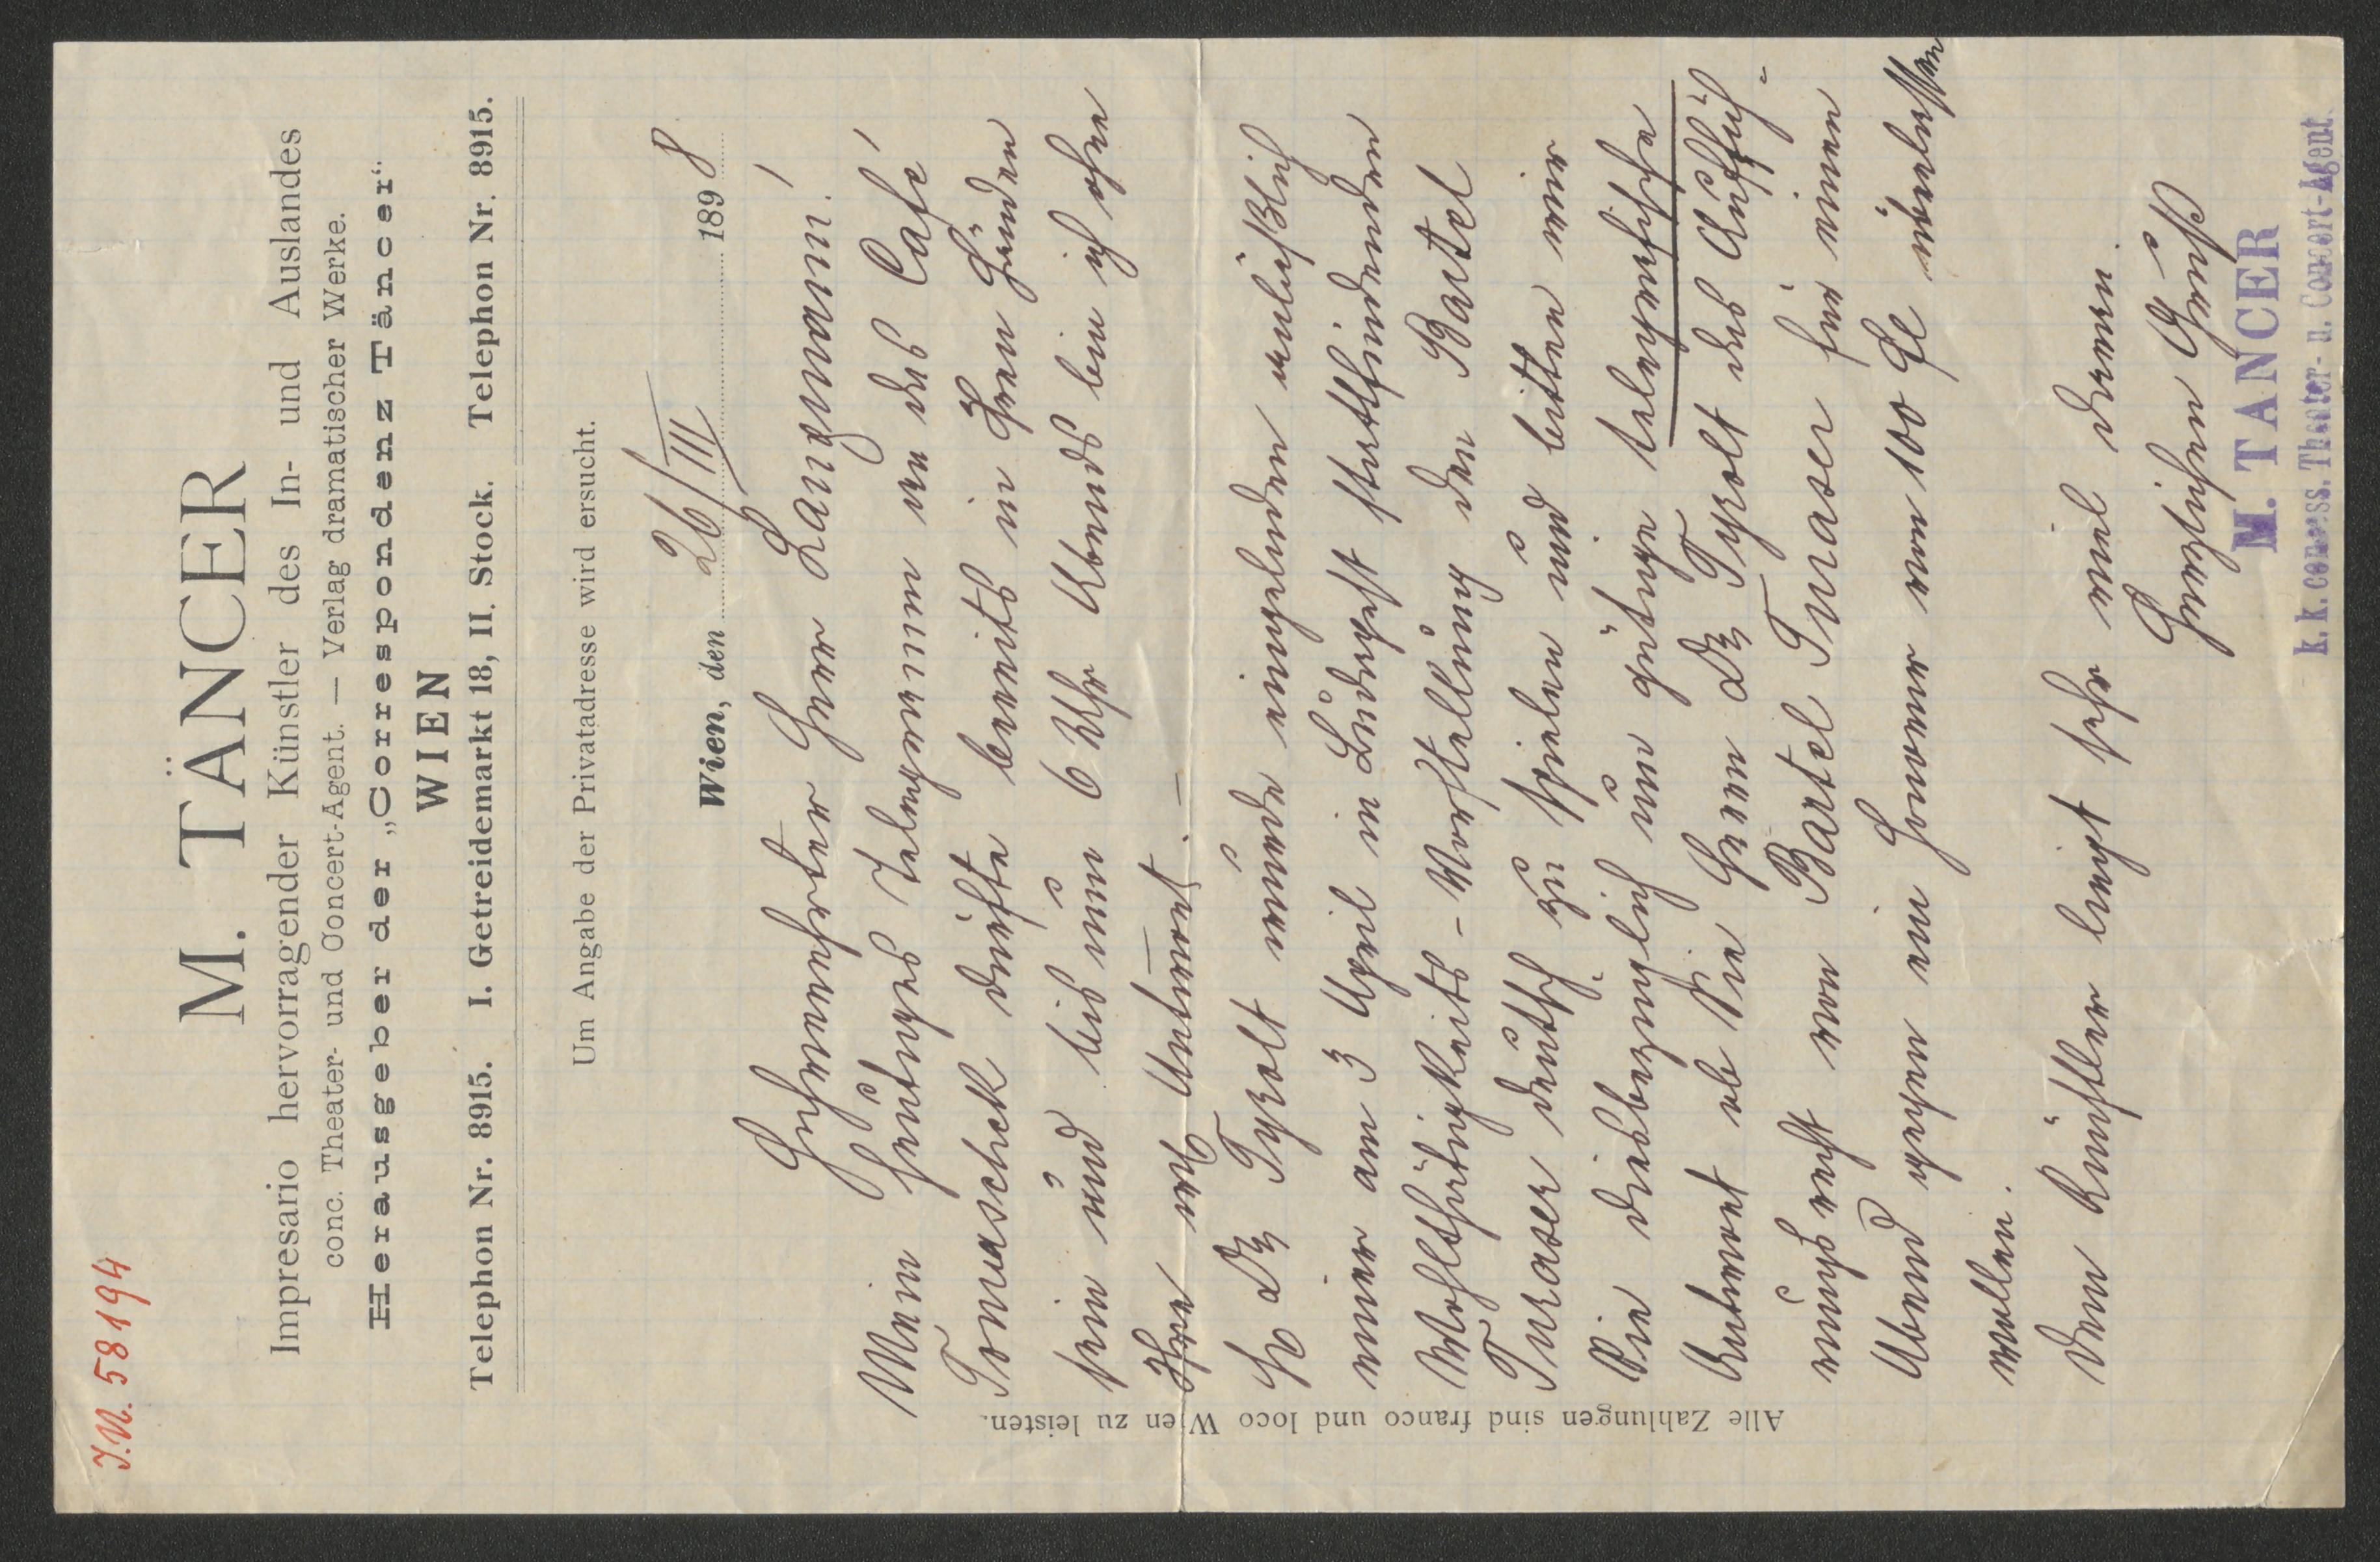 J.N. 58194
M. TÄNCER
Impresario hervorragender Künstler des In- und Auslandes
conc. Theater- und Concert-Agent. — Verlag dramatischer Werke.
Herausgeber der „Correspondenz Täncer“
WIEN
Telephon Nr. 8915. I. Getreidemarkt 18, II. Stock. Telephon Nr. 8915.
Um Angabe der Privatadresse wird ersucht.
Wien, den 26/III 1898
Hochverehrter Herr Langmann!
Mein heutiges Telegramm an das Café
Tomascheck dürfte bereits in Ihren Händen
sein und bis um 6 Uhr Abends bin ich ohne
Ihre Antwort. —
Hr Dr Tyrolt wurde eingeladen anläßlich
einer am 3 April in Budapest stattfindenden
Wohlthätigkeits-Vorstellung den Bartel
Turaser deutsch zu spielen und bitten wir
Sie diesbezüglich um gütige telegrafische
Antwort ob Sie Herrn Dr Tyrolt das Auffüh-
rungsrecht von Bartel Turaser für einen
Abend gegen ein Honorar von 100 fl überlassen
wollen.
Dem Künstler liegt sehr viel daran
Hochachtend
M. TANCER
k. k. concess. Theater- u. Concert-Agent.
Alle Zahlungen sind franco und loco Wien zu leisten.